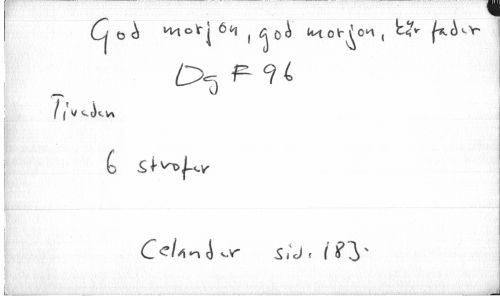 God morjon, god morjon, kär fader
Dg F 96
Tiveden
6 strofer
Celander sid. 183.